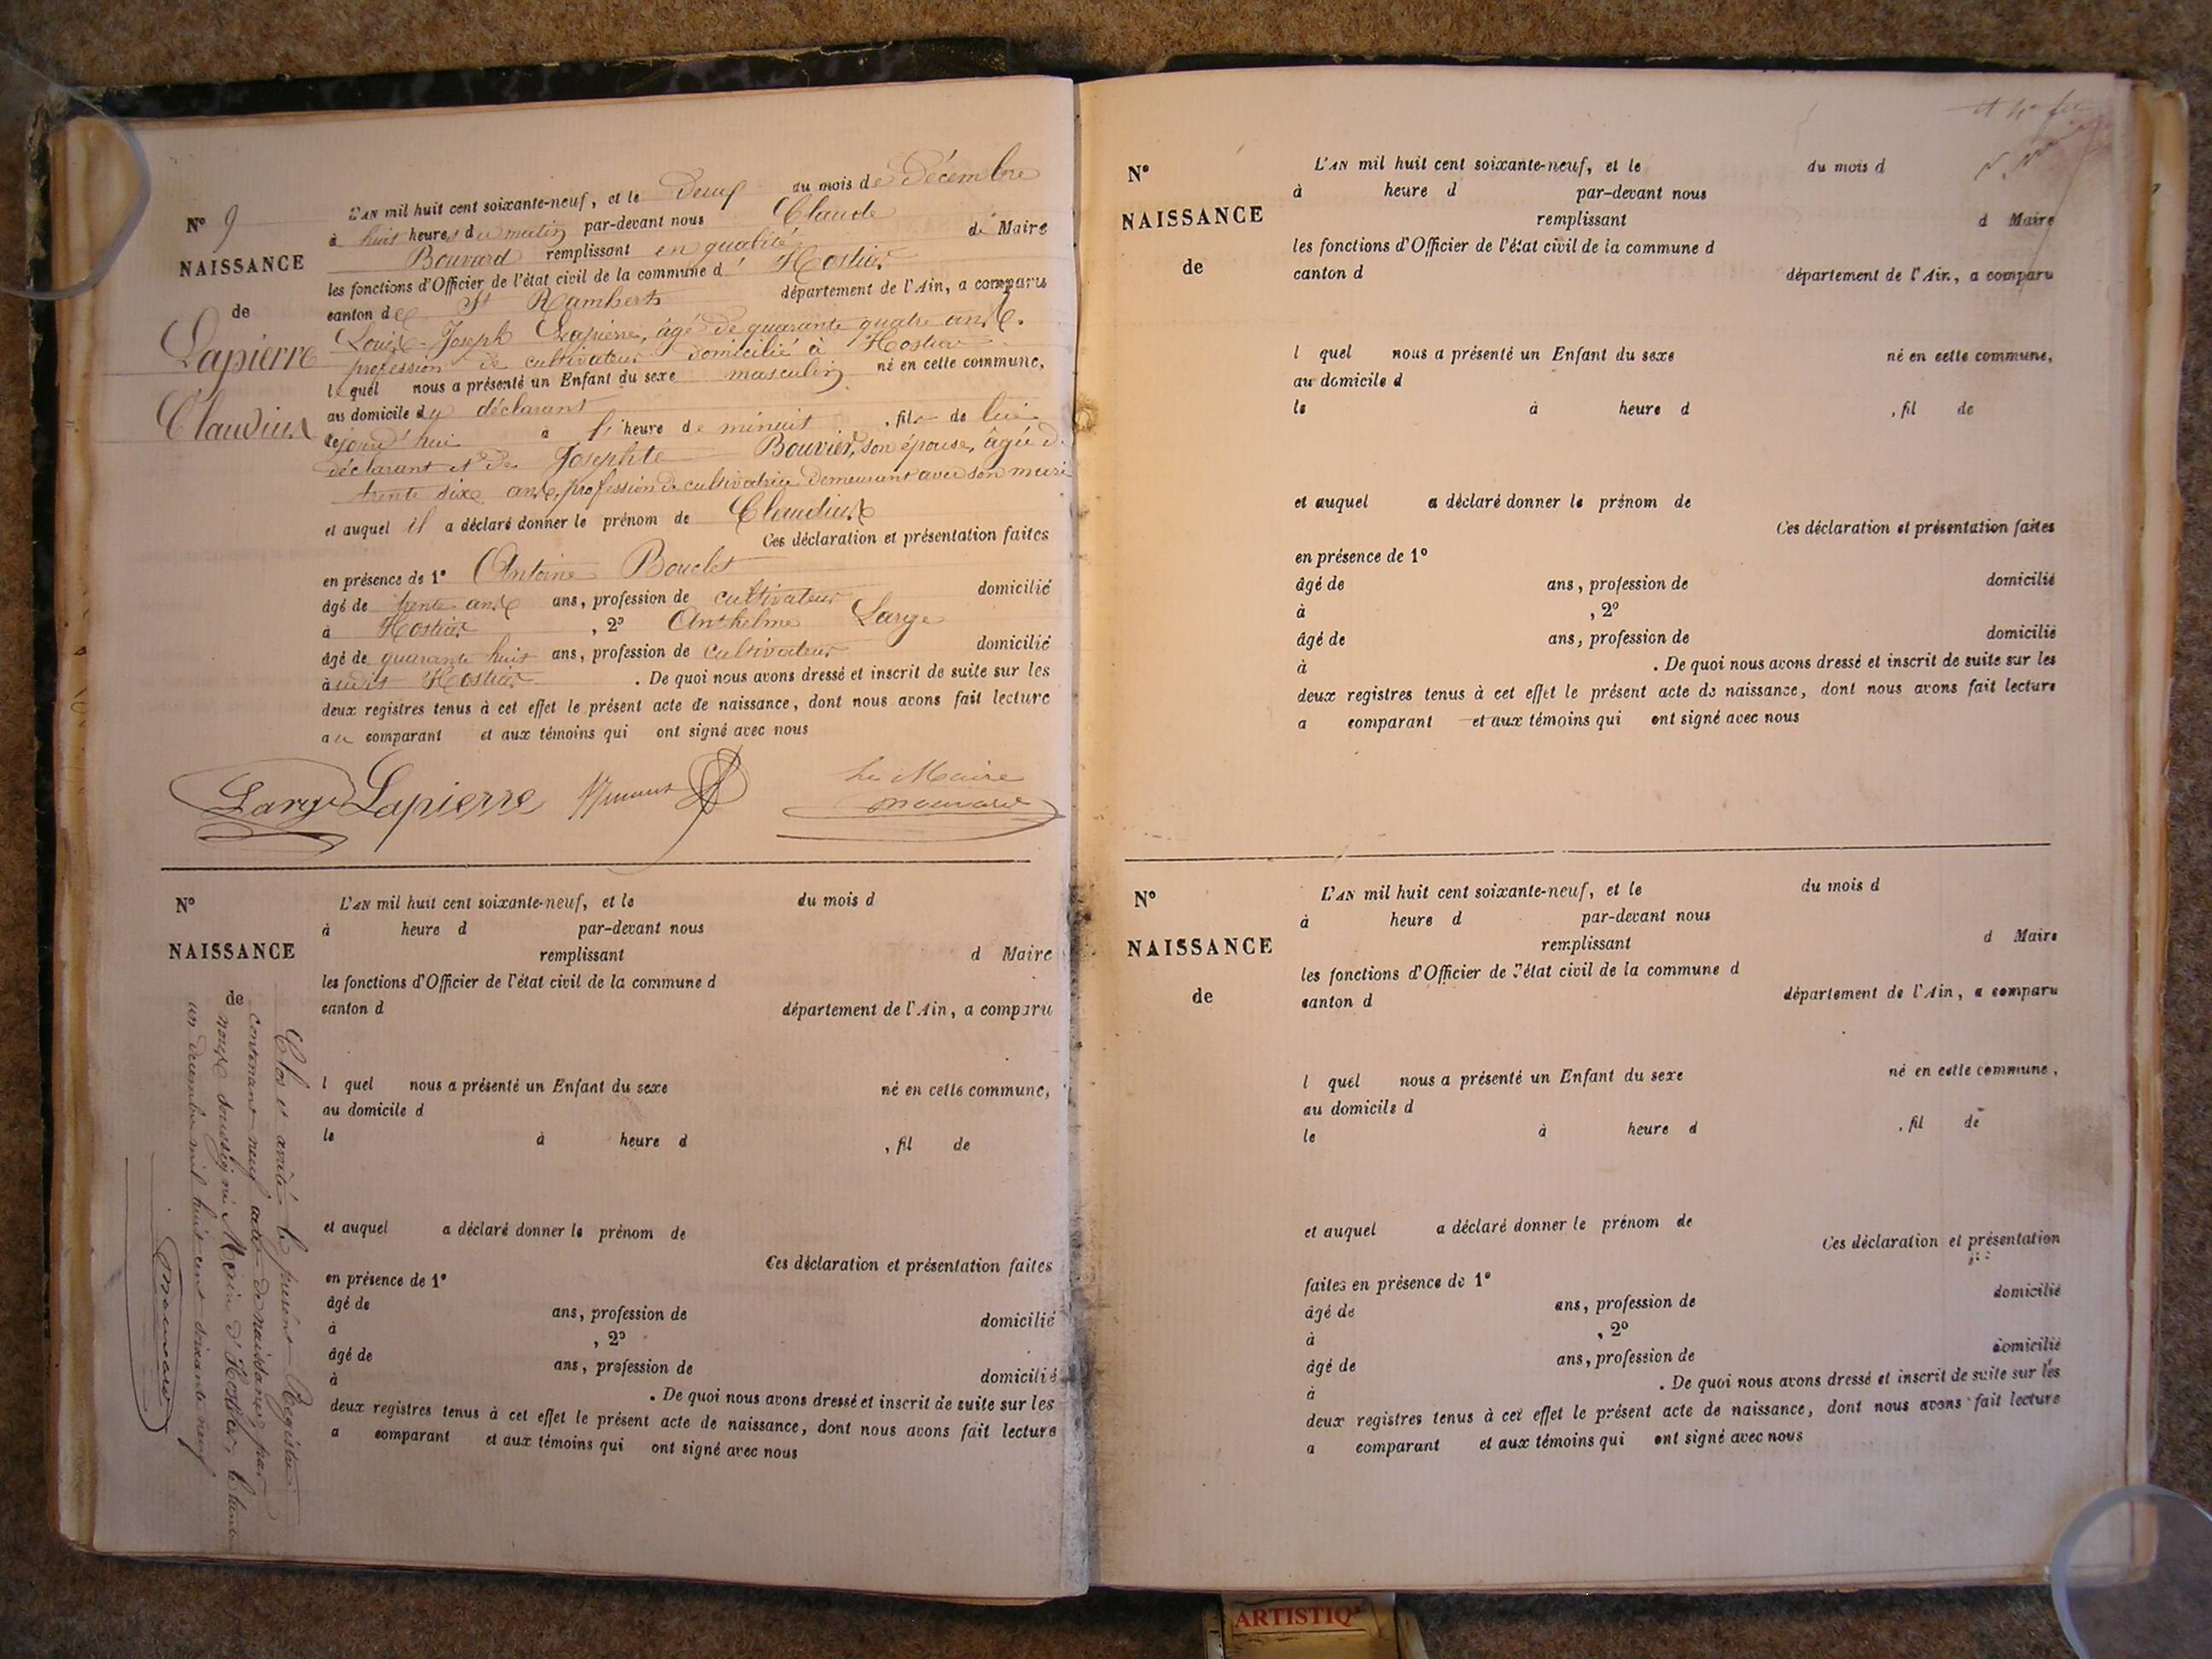 N° 9
NAISSANCE
de
Lapierre
Claudius
L'AN mil huit cent soixante-neuf, et le deux du mois de Décembre
à huit heures du matin par-devant nous Claude
Bouvard remplissant en qualité de Maire
les fonctions d'Officier de l'état civil de la commune d' Hostiaz
canton de St Rambert département de l'Ain, a comparu
Louis-Joseph Lapierre, âgé de quarante quatre ans.
profession de cultivateur domicilié à Hostiaz
lequel nous a présenté un Enfant du sexe masculin né en cette commune,
au domicile du déclarant
cejourd'hui à l'heure de minuit, fils de lui
déclarant et de Josephte Bouvier, son épouse, âgée de
trente six ans, profession de cultivatrice demeurant avec son mari
et auquel il a déclaré donner le prénom de Claudius
Ces déclaration et présentation faites
en présence de 1° Antoine Bouclet
âgé de trente ans ans, profession de cultivateur domicilié
à Hostiaz, 2° Anthelme Large
âgé de quarante huit ans, profession de cultivateur domicilié
à Hostiaz. De quoi nous avons dressé et inscrit de suite sur les
deux registres tenus à cet effet le présent acte de naissance, dont nous avons fait lecture
au comparant et aux témoins qui ont signé avec nous
Large Lapierre Le Maire
Bouvard
N°
NAISSANCE
de
L'AN mil huit cent soixante-neuf, et le du mois d
à heure d par-devant nous
remplissant d Maire
les fonctions d'Officier de l'état civil de la commune d
canton d département de l'Ain, a comparu
l quel nous a présenté un Enfant du sexe né en cette commune,
au domicile d
le à heure d , fil de
et auquel a déclaré donner le prénom de
Ces déclaration et présentation faites
en présence de 1°
âgé de ans, profession de domicilié
à , 2°
âgé de ans, profession de domicilié
à . De quoi nous avons dressé et inscrit de suite sur les
deux registres tenus à cet effet le présent acte de naissance, dont nous avons fait lecture
a comparant et aux témoins qui ont signé avec nous
Clos et arrêté le présent Registre
contenant neuf actes de naissances par
nous soussigné Maire d'Hostiaz, le trente
un décembre mil huit cent soixante neuf
Bouvard
N°
NAISSANCE
de
L'AN mil huit cent soixante-neuf, et le du mois d
à heure d par-devant nous
remplissant d Maire
les fonctions d'Officier de l'état civil de la commune d
canton d département de l'Ain, a comparu
l quel nous a présenté un Enfant du sexe né en cette commune,
au domicile d
le à heure d , fil de
et auquel a déclaré donner le prénom de
Ces déclaration et présentation faites
en présence de 1°
âgé de ans, profession de domicilié
à , 2°
âgé de ans, profession de domicilié
à . De quoi nous avons dressé et inscrit de suite sur les
deux registres tenus à cet effet le présent acte de naissance, dont nous avons fait lecture
a comparant et aux témoins qui ont signé avec nous
N°
NAISSANCE
de
L'AN mil huit cent soixante-neuf, et le du mois d
à heure d par-devant nous
remplissant d Maire
les fonctions d'Officier de l'état civil de la commune d
canton d département de l'Ain, a comparu
l quel nous a présenté un Enfant du sexe né en cette commune,
au domicile d
le à heure d , fil de
et auquel a déclaré donner le prénom de
Ces déclaration et présentation
faites en présence de 1°
âgé de ans, profession de domicilié
à , 2°
âgé de ans, profession de domicilié
à . De quoi nous avons dressé et inscrit de suite sur les
deux registres tenus à cet effet le présent acte de naissance, dont nous avons fait lecture
a comparant et aux témoins qui ont signé avec nous
ARTISTIQ